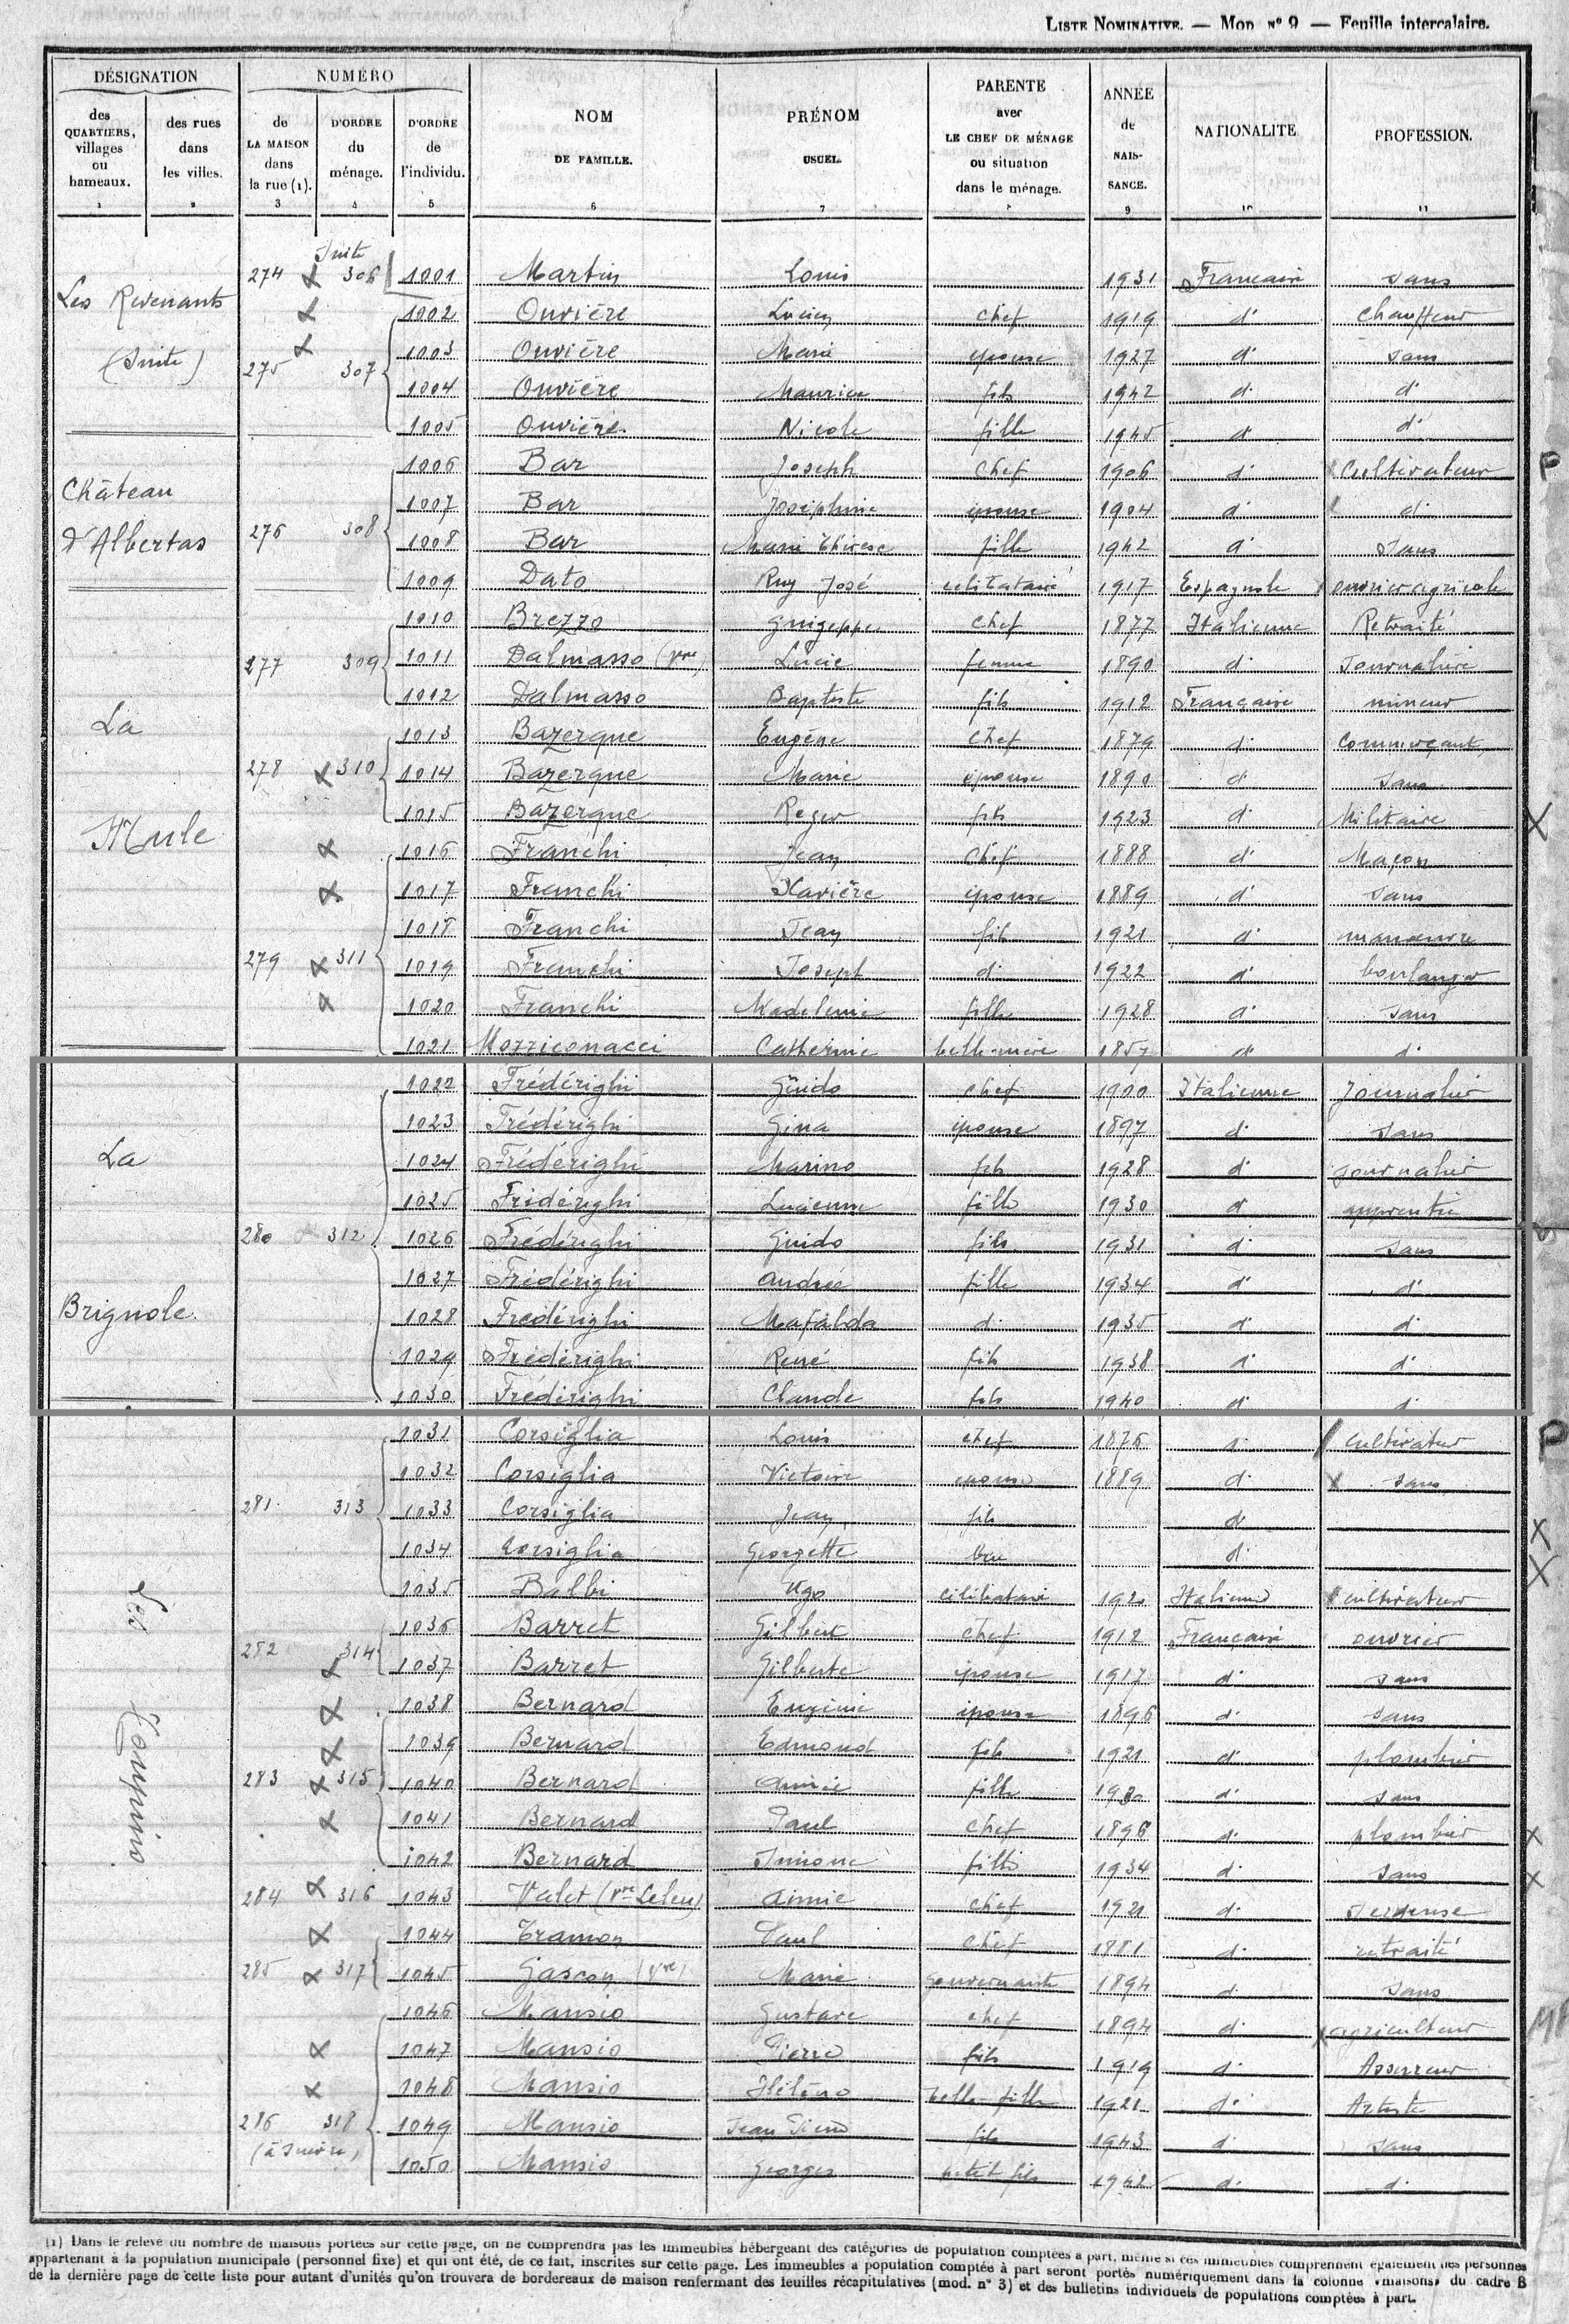 LISTE NOMINATIVE. — MOD. N° 9 — Feuille intercalaire.
DÉSIGNATION NUMÉRO NOM DE FAMILLE. PRÉNOM USUEL. PARENTÉ avec LE CHEF DE MÉNAGE ou situation dans le ménage. ANNÉE de NAIS- SANCE. NATIONALITÉ PROFESSION.
des QUARTIERS, villages ou hameaux. des rues dans les villes. de LA MAISON dans la rue (1). D'ORDRE du ménage. D'ORDRE de l'individu.
1 2 3 4 5 6 7 9 10 11
Suite
Les Revenants 274 306 1001 Martin Louis 1931 Française sans
1002 Ouvière Lucien chef 1919 d° chauffeur
(Suite) 275 307 1003 Ouvière Marie épouse 1927 d° sans
1004 Ouvière Maurice fils 1942 d° d°
1005 Ouvière Nicole fille 1945 d° d°
1006 Bar Joseph chef 1906 d° Cultivateur P
Château 1007 Bar Joséphine épouse 1904 d° d°
d'Albertas 276 308 1008 Bar Marie Thérèse fille 1942 d° sans
1009 Dato Ruy José célibataire 1917 Espagnole ouvrier agricole
1010 Brezzo Guigeppe chef 1877 Italienne Retraité
277 309 1011 Dalmasso (Vve) Lucie femme 1890 d° Journalière
1012 Dalmasso Baptiste fils 1912 Française mineur
La 1013 Bazerque Eugène chef 1879 d° Commerçant
278 310 1014 Bazerque Marie épouse 1890 d° sans
Mule 1015 Bazerque Roger fils 1923 d° Militaire X
1016 Franchi Jean Chef 1888 d° Maçon
1017 Franchi Xavière épouse 1889 d° sans
1018 Franchi Jean fils 1921 d° manœuvre
279 311 1019 Franchi Joseph d° 1922 d° boulanger
1020 Franchi Madeleine fille 1928 d° sans
1021 Mozziconacci Catherine belle-mère 1857 d° d°
1022 Frédérighi Guido chef 1900 Italienne journalier
1023 Frédérighi Gina épouse 1897 d° sans
La 1024 Frédérighi Marino fils 1928 d° journalier
1025 Frédérighi Lucienne fille 1930 d° apprentie
280 312 1026 Frédérighi Guido fils 1931 d° sans
1027 Frédérighi Andrée fille 1934 d° d°
Brignole. 1028 Frédérighi Mafalda d° 1935 d° d°
1029 Frédérighi René fils 1938 d° d°
1030 Frédérighi Claude fils 1940 d° d°
1031 Corsiglia Louis chef 1876 d° Cultivateur P
1032 Corsiglia Victoire épouse 1889 d° sans
281 313 1033 Corsiglia Jean fils d° X
1034 Corsiglia Georgette bru d° X
1035 Balbi Ugo célibataire 1920 Italienne cultivateur
Les 1036 Barret Gilbert chef 1912 Française ouvrier
282 314 1037 Barret Gilberte épouse 1917 d° sans
1038 Bernard Eugénie épouse 1896 d° sans
1039 Bernard Edmond fils 1921 d° plombier
283 315 1040 Bernard Aimée fille d° sans
1041 Bernard Paul chef 1896 d° plombier X
1042 Bernard Simone fille 1934 d° sans X
284 316 1043 Valet (Vve Leleu) Aimée chef 1921 d°
1044 Tramon Paul chef 1881 d° retraité
285 317 1045 Gascon (Vve) Marie gouvernante 1894 d° sans
1046 Mansio Gustave chef 1894 d° agriculteur
1047 Mansio Pierre fils 1919 d° Assureur
1048 Mansio Hélène belle-fille 1921 d° Artiste
286 318 1049 Mansio Jean Pierre fils 1943 d° sans
(à suivre) 1050 Mansio Georges petit fils 1942 d° d°
(1) Dans le relevé du nombre de maisons portées sur cette page, on ne comprendra pas les immeubles hébergeant des catégories de population comptées à part, même si ces immeubles comprennent également des personnes
appartenant à la population municipale (personnel fixe) et qui ont été, de ce fait, inscrites sur cette page. Les immeubles à population comptée à part seront portés numériquement dans la colonne «maisons» du cadre B
de la dernière page de cette liste pour autant d'unités qu'on trouvera de bordereaux de maison renfermant des feuilles récapitulatives (mod. n° 3) et des bulletins individuels de populations comptées à part.